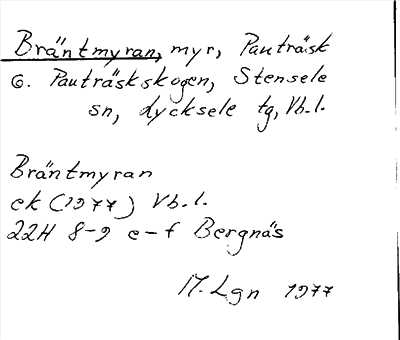 Bräntmyran, myr, Pauträsk
o. Pauträskskogen, Stensele
sn, Lycksele tg, Vb.l.
Bräntmyran
ek (1977) Vb.l.
22H 8-9 e-f Bergnäs
M. Lgn 1977